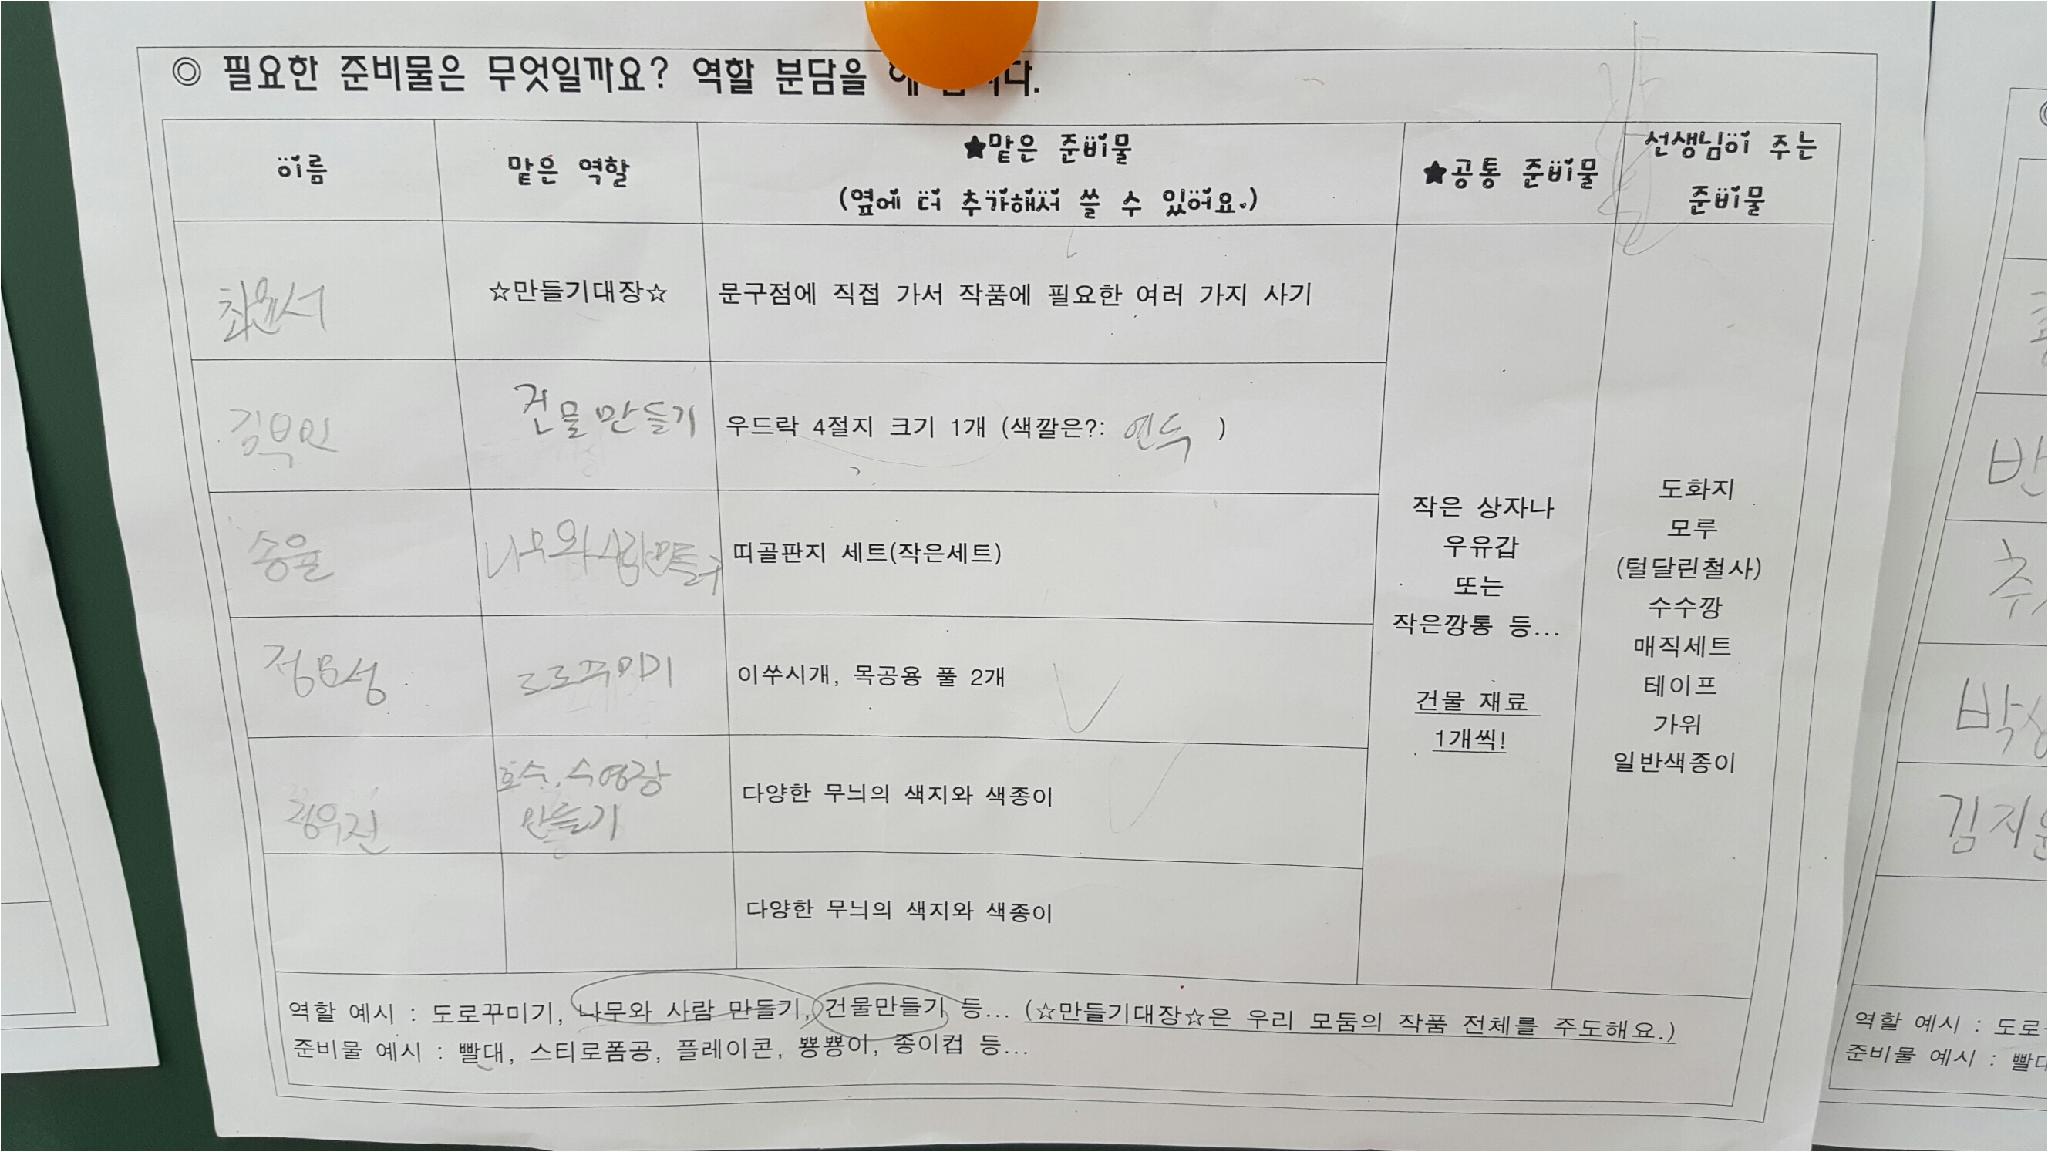 ◎ 필요한 준비물은 무엇일까요? 역할 분담을
이름
맡은 역할
★맡은 준비물
(옆에 더 추가해서 쓸 수 있어요.)
★공통 준비물
선생님이 주는
준비물
최윤서
☆만들기대장☆
문구점에 직접 가서 작품에 필요한 여러 가지 사기
건물 만들기
우드락 4절지 크기 1개 (색깔은?: 연두 )
송율
나무와 사람만들기
띠골판지 세트(작은세트)
이쑤시개, 목공용 풀 2개
정우진
호수, 수영장
만들기
다양한 무늬의 색지와 색종이
다양한 무늬의 색지와 색종이
작은 상자나
우유갑
또는
작은깡통 등...
건물 재료
1개씩!
도화지
모루
(털달린철사)
수수깡
매직세트
테이프
가위
일반색종이
역할 예시 : 도로꾸미기, 나무와 사람 만들기, 건물만들기 등... (☆만들기대장☆은 우리 모둠의 작품 전체를 주도해요.)
준비물 예시 : 빨대, 스티로폼공, 플레이콘, 뿅뿅이, 종이컵 등...
김지윤
역할 예시 : 도로
준비물 예시 : 빨대